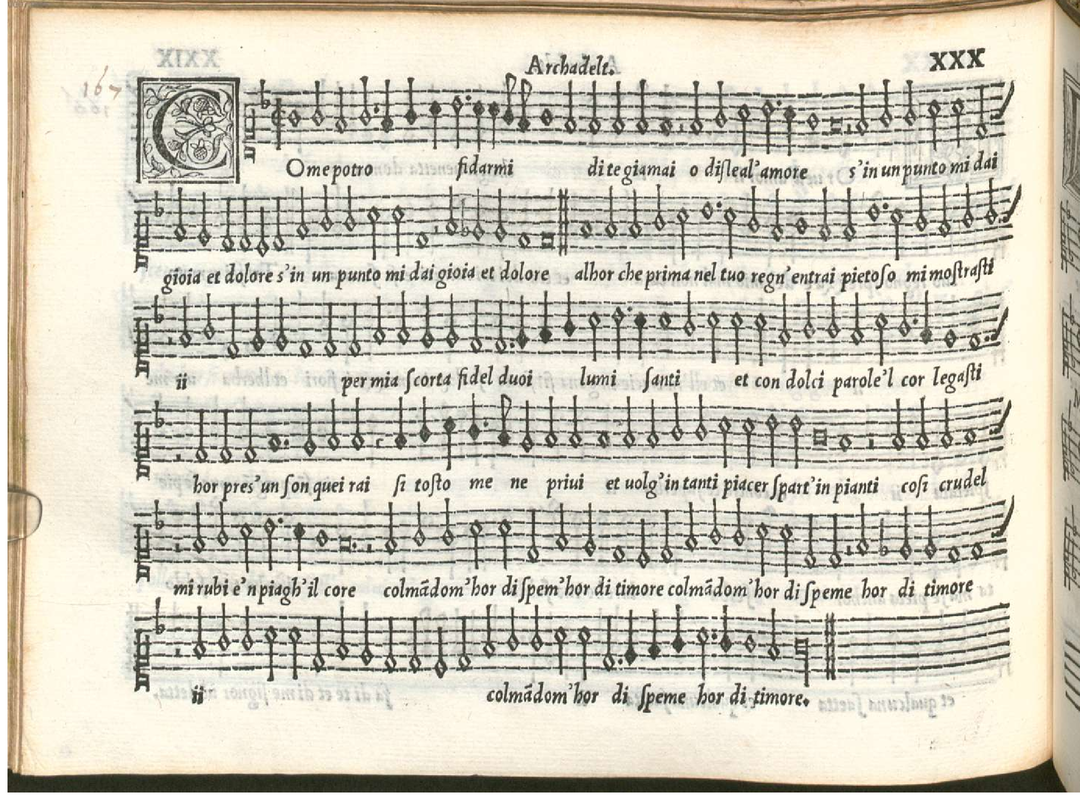 Archadelt.
XXX
167
COme potro fidarmi di te giamai o disleal'amore s'in un punto mi dai
gioia et dolore s'in un punto mi dai gioia et dolore alhor che prima nel tuo regn'entrai pietoso mi mostrasti
ii per mia scorta fidel duoi lumi santi et con dolci parole'l cor legasti
hor pres'un son quei rai si tosto me ne priui et uolg'in tanti piacer spart'in pianti cosi crudel
mi rubi e'n piagh'il core colmādom'hor di spem'hor di timore colmādom'hor di speme hor di timore
ii colmādom'hor di speme hor di timore.